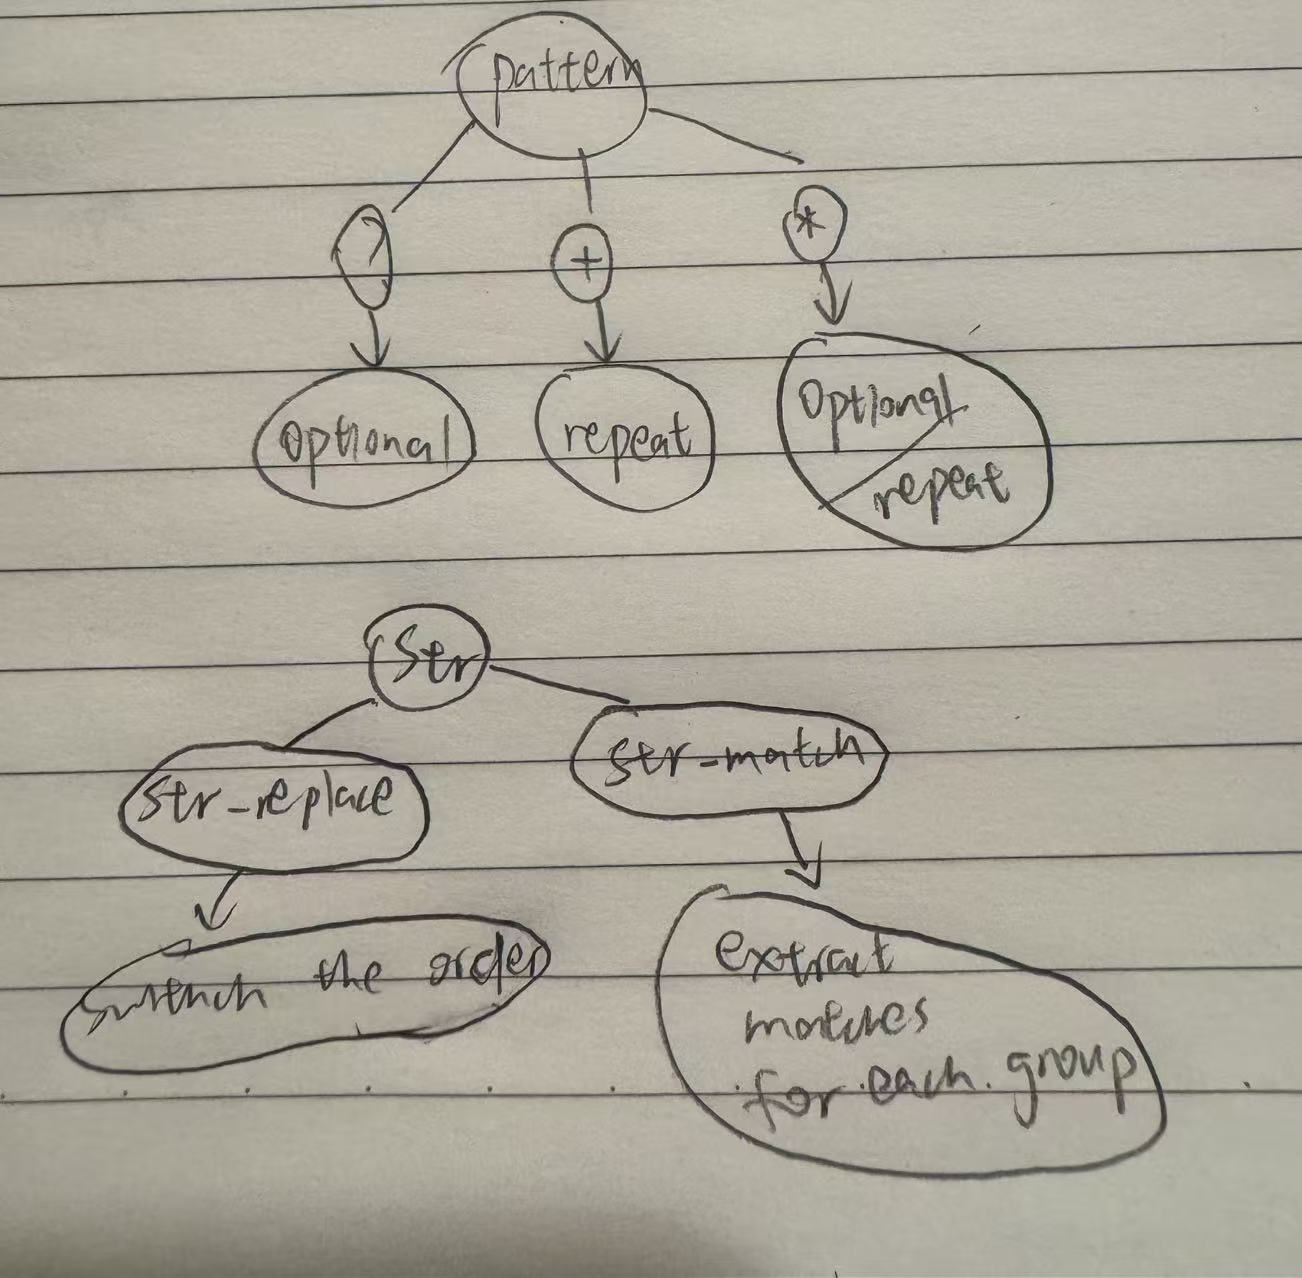 pattern
?
+
*
optional
repeat
optional
repeat
Str
str-replace
str-match
switch the order
extract
matches
for each group